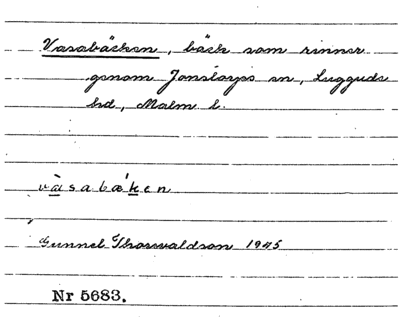 Vasabäcken, bäck som rinner
genom Jonstorps sn, Luggude
hd, Malm l.
vàsabæ'ken
Gunnel Thorvaldson 1945
Nr 5683.